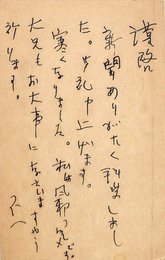 謹啓
新聞ありがたく拝受しまし
た。御礼申上げます。
寒くなりました。私は風邪の気味です。
大兄もお大事になさいますやう
祈ります。